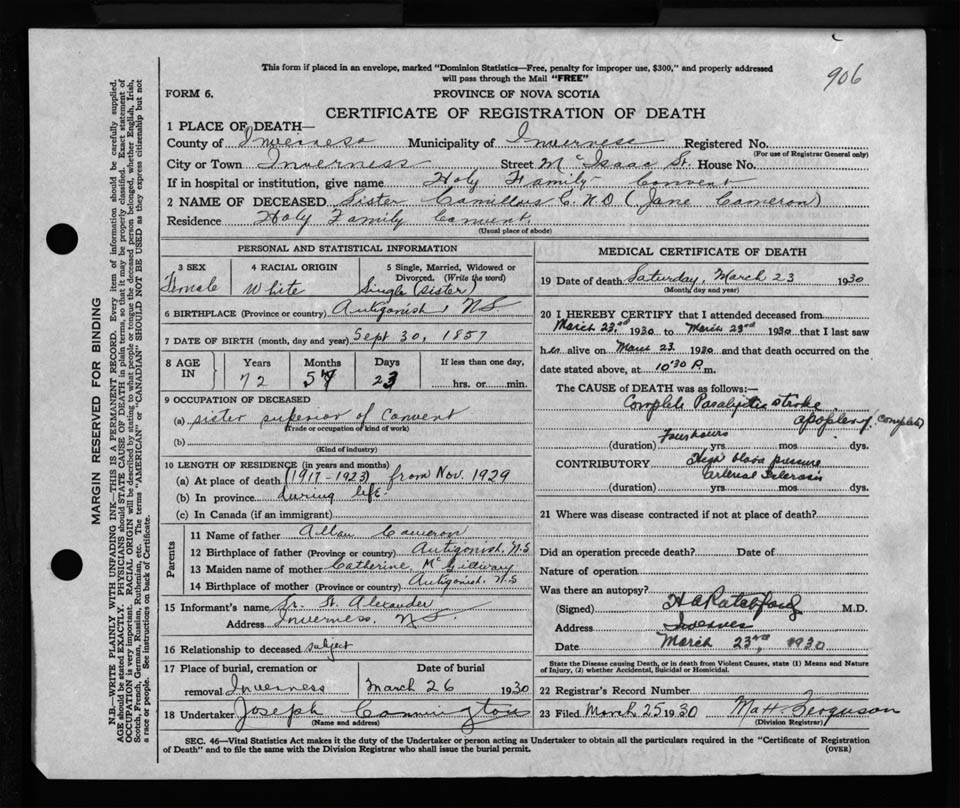 906
This form if placed in an envelope, marked "Dominion Statistics—Free, penalty for improper use, $300," and properly addressed
will pass through the Mail "FREE"
FORM 6.
PROVINCE OF NOVA SCOTIA
CERTIFICATE OF REGISTRATION OF DEATH
1 PLACE OF DEATH—
County of Inverness Municipality of Inverness Registered No.
(For use of Registrar General only)
City or Town Inverness Street McIsaac St. House No.
If in hospital or institution, give name Holy Family Convent
2 NAME OF DECEASED Sister Camillus C.N.D (Jane Cameron)
Residence Holy Family Convent.
(Usual place of abode)
PERSONAL AND STATISTICAL INFORMATION
3 SEX
Female
4 RACIAL ORIGIN
White
5 Single, Married, Widowed or
Divorced. (Write the word)
Single (Sister)
6 BIRTHPLACE (Province or country) Antigonish N.S.
7 DATE OF BIRTH (month, day and year) Sept 30, 1857
8 AGE IN
Years Months Days If less than one day,
72 5 23 hrs. or min.
9 OCCUPATION OF DECEASED
(a) sister superior of Convent
(Trade or occupation of kind of work)
(b)
(Kind of industry)
10 LENGTH OF RESIDENCE (in years and months)
(a) At place of death (1917-1923) from Nov. 1929
(b) In province during life
(c) In Canada (if an immigrant)
Parents
11 Name of father Allan Cameron
12 Birthplace of father (Province or country) Antigonish. N.S
13 Maiden name of mother Catherine McGillivary
14 Birthplace of mother (Province or country) Antigonish. N.S
15 Informant's name Sr. St. Alexander
Address Inverness, N.S.
16 Relationship to deceased subject
17 Place of burial, cremation or Date of burial
removal Inverness March 26 1930
18 Undertaker Joseph
(Name and address)
MEDICAL CERTIFICATE OF DEATH
19 Date of death Saturday, March 23 1930
(Month, day and year)
20 I HEREBY CERTIFY that I attended deceased from
March 23rd 1930 to March 23rd 1930 that I last saw
her alive on March 23 1930 and that death occurred on the
date stated above, at 10'30 P.m.
The CAUSE of DEATH was as follows:—
Complete Paralytic stroke
apoplexy (complete)
four hours
(duration) yrs mos dys.
CONTRIBUTORY High blood pressure
arterial Sclerosis
(duration) yrs mos dys.
21 Where was disease contracted if not at place of death?
Did an operation precede death? Date of
Nature of operation
Was there an autopsy?
(Signed) H A Ratchford M.D.
Address Inverness
Date March 23rd, 1930
State the Disease causing Death, or in death from Violent Causes, state (1) Means and Nature
of Injury, (2) whether Accidental, Suicidal or Homicidal.
22 Registrar's Record Number
23 Filed March 25 1930 M. H. Ferguson
(Division Registrar)
SEC. 46—Vital Statistics Act makes it the duty of the Undertaker or Person acting as Undertaker to obtain all the particulars required in the "Certificate of Registration
of Death" and to file the same with the Division Registrar who shall issue the burial permit.
(OVER)
MARGIN RESERVED FOR BINDING
N.B.—WRITE PLAINLY WITH UNFADING INK—THIS IS A PERMANENT RECORD. Every item of information should be carefully supplied.
AGE should be stated EXACTLY. PHYSICIANS should STATE CAUSE OF DEATH in plain terms, so that it may be properly classified. Exact statement of
OCCUPATION is very important. RACIAL ORIGIN will be described by stating to what people or tongue the deceased person belonged, whether English, Irish,
Scotch, French, German, Russian, Ruthenian, etc. The terms "AMERICAN" or "CANADIAN" SHOULD NOT BE USED as they express citizenship but not
a race or people. See instructions on back of Certificate.